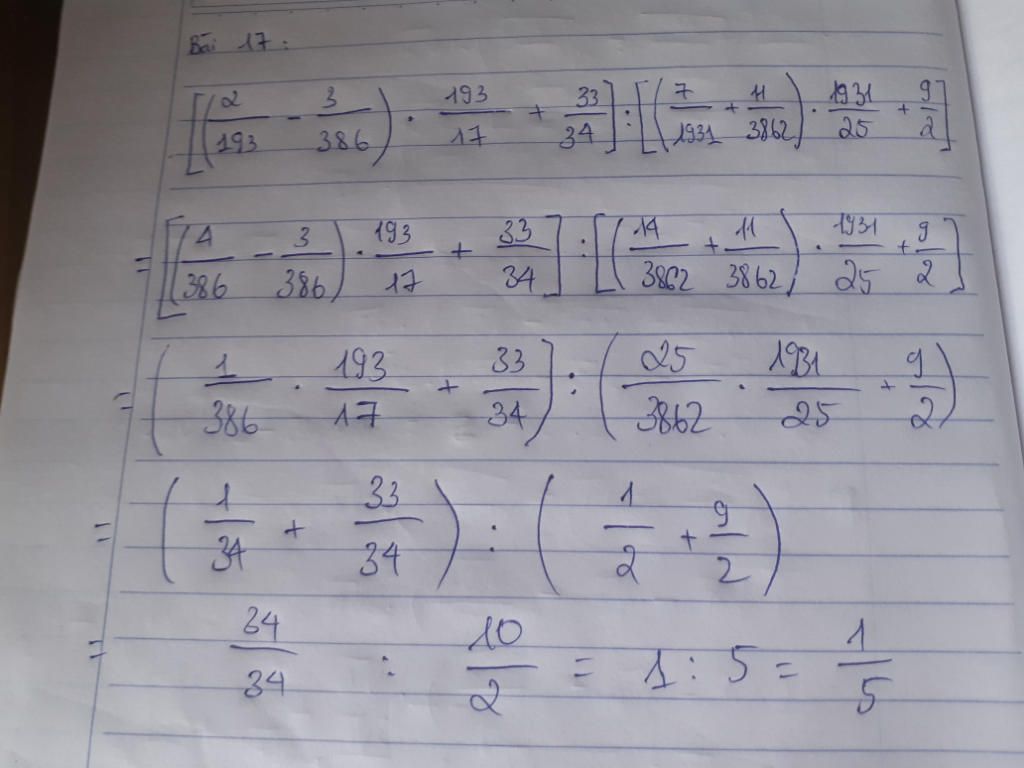 Bài 17:
[(2/193 - 3/386) . 193/17 + 33/34] : [(7/1931 + 11/3862) . 1931/25 + 9/2]
= [(4/386 - 3/386) . 193/17 + 33/34] : [(14/3862 + 11/3862) . 1931/25 + 9/2]
= (1/386 . 193/17 + 33/34] : (25/3862 . 1931/25 + 9/2)
= (1/34 + 33/34) : (1/2 + 9/2)
= 34/34 : 10/2 = 1 : 5 = 1/5